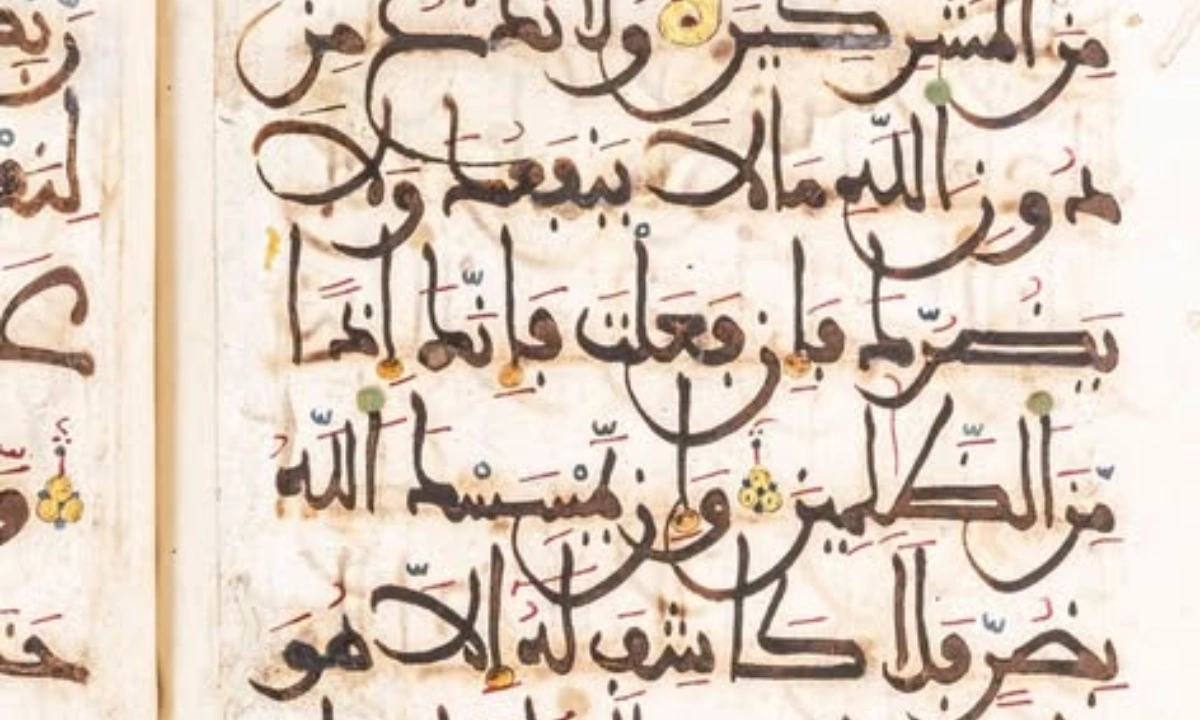 من المشركين ولا تدع من
دون الله ما لا ينفعك ولا
يضرك فإن فعلت فإنك إذا
من الظلمين وإن يمسسك الله
بضر فلا كاشف له إلا هو